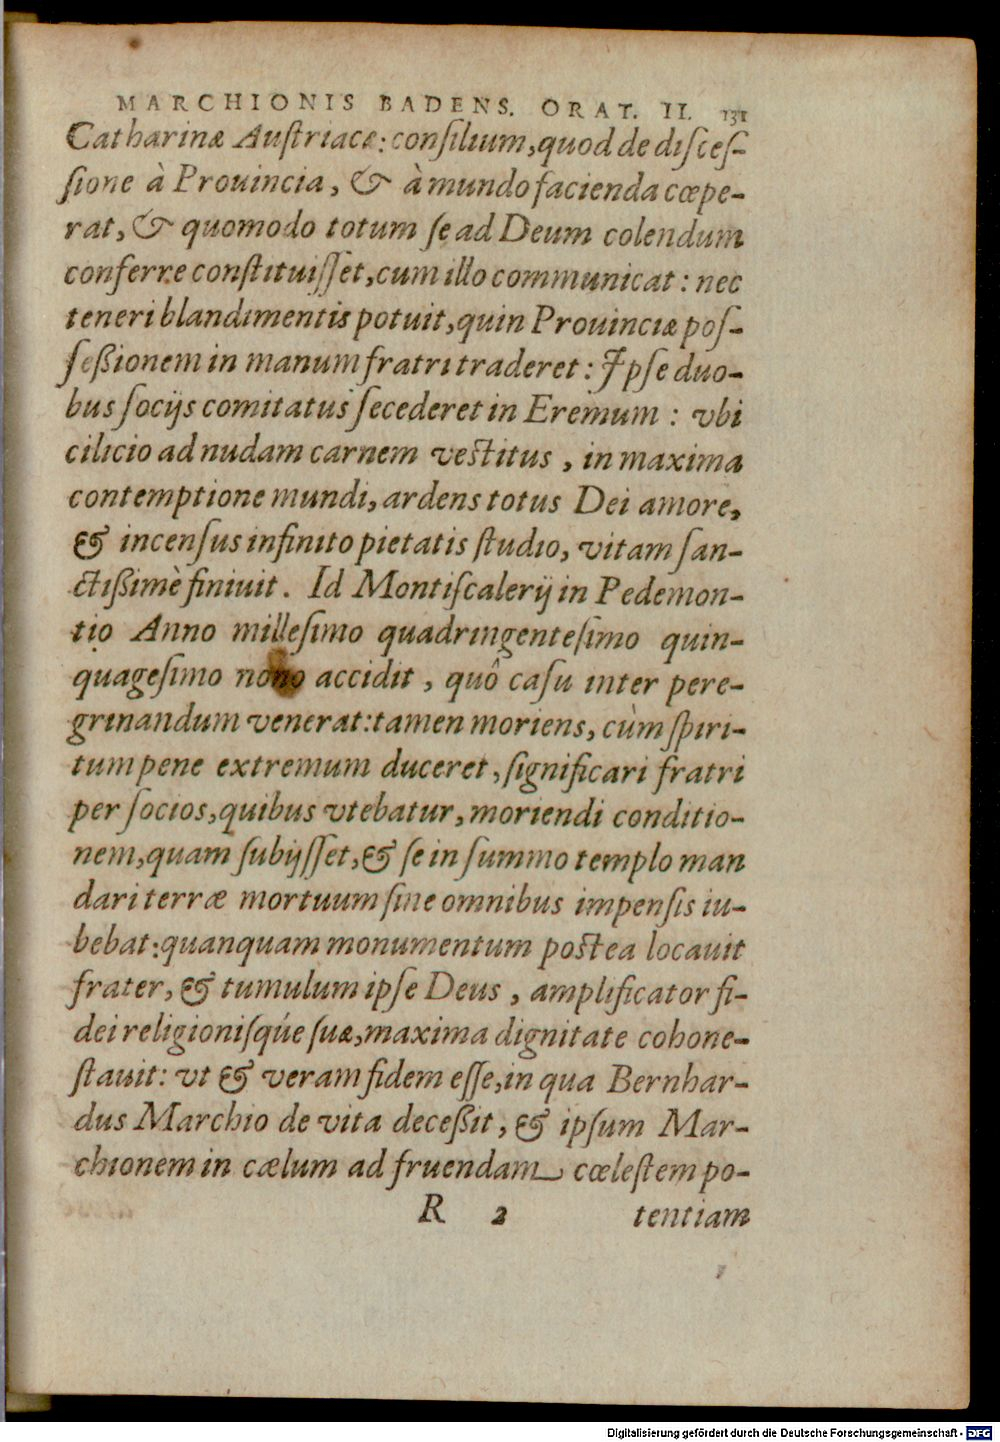 MARCHIONIS BADENS. ORAT. II. 131
Catharinæ Auſtriacæ: conſilium, quod de diſceſ-
ſione à Prouincia, & à mundo facienda cœpe-
rat, & quomodo totum ſe ad Deum colendum
conferre conſtituiſſet, cum illo communicat: nec
teneri blandimentis potuit, quin Prouinciæ poſ-
ſeßionem in manum fratri traderet: Ipſe duo-
bus ſocijs comitatus ſecederet in Eremum: vbi
cilicio ad nudam carnem veſtitus, in maxima
contemptione mundi, ardens totus Dei amore,
& incenſus infinito pietatis ſtudio, vitam ſan-
ctißimè finiuit. Id Montiſcalerij in Pedemon-
tio Anno milleſimo quadringenteſimo quin-
quageſimo nono accidit, quô caſu inter pere-
grinandum venerat: tamen moriens, cùm ſpiri-
tum pene extremum duceret, ſignificari fratri
per ſocios, quibus vtebatur, moriendi conditio-
nem, quam ſubijſſet, & ſe in ſummo templo man
dari terræ mortuum ſine omnibus impenſis iu-
bebat: quanquam monumentum poſtea locauit
frater, & tumulum ipſe Deus, amplificator fi-
dei religioniſq́ue ſuæ, maxima dignitate cohone-
ſtauit: vt & veram fidem eſſe, in qua Bernhar-
dus Marchio de vita deceßit, & ipſum Mar-
chionem in cælum ad fruendam cœleſtem po-
R 2 tentiam
Digitalisierung gefördert durch die Deutsche Forschungsgemeinschaft - DFG